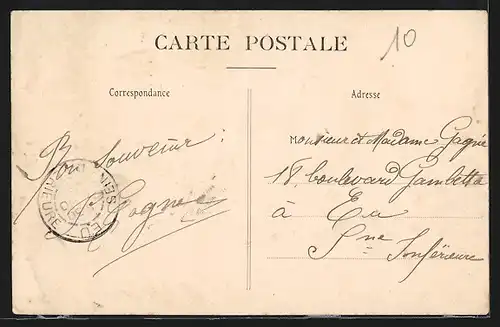 CARTE POSTALE
10
Correspondance
Adresse
Bon souvenir :
Gagné
Monsieur et Madame Gagné
18, boulevard Gambetta
à Eu
Sne Inférieure
EU
SEINE
RIEURE